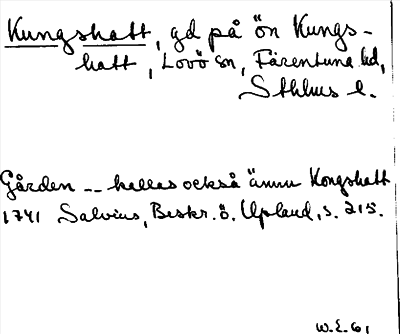 Kungshatt, gd på ön Kungs-
hatt, Lovö sn, Färentuna hd,
Sthlms l.
Gården -- kallas också ännu Kongshatt
1741 Salvius, Beskr. ö. Upland, s. 215.
W.E. 61